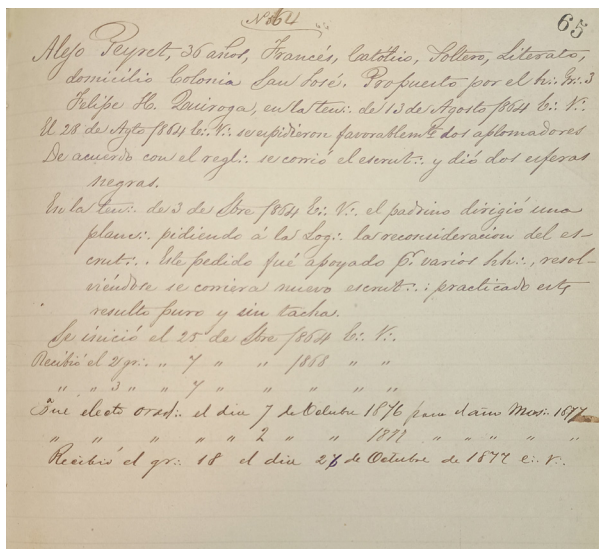 Nº 64
65
Alejo Peyret, 36 años, Francés, Católico, Soltero, Literato,
domicilio Colonia San José. Propuesto por el h∴ Gr∴ 3
Felipe H. Quiroga, en la ten∴ de 13 de Agosto /864 E∴ V∴
El 28 de Agto /864 E∴ V∴ se espidieron favorablemte dos aplomadores
De acuerdo con el regl∴ se corrió el escrut∴ y dió dos esferas
negras.
En la ten∴ de 3 de Sbre /864 E∴ V∴ el padrino dirigió una
planc∴ pidiendo á la Log∴ la reconsideracion del es-
crut∴. Este pedido fué apoyado pr varios hh∴, resol-
viéndose se corriera nuevo escrut∴: practicado este,
resulto puro y sin tacha.
Se inició el 25 de Sbre /864 E∴ V∴
Recibió el 2 gr∴ " 7 " " /868 " "
" " 3 " " 7 " " " " "
Fue electo orad∴ el dia 7 de Octubre 1876 para el año Mas∴ 1877
" " " " " 2 " " 1877 " " " " "
Recibió el gr∴ 18 el dia 26 de Octubre de 1877 e∴ v∴